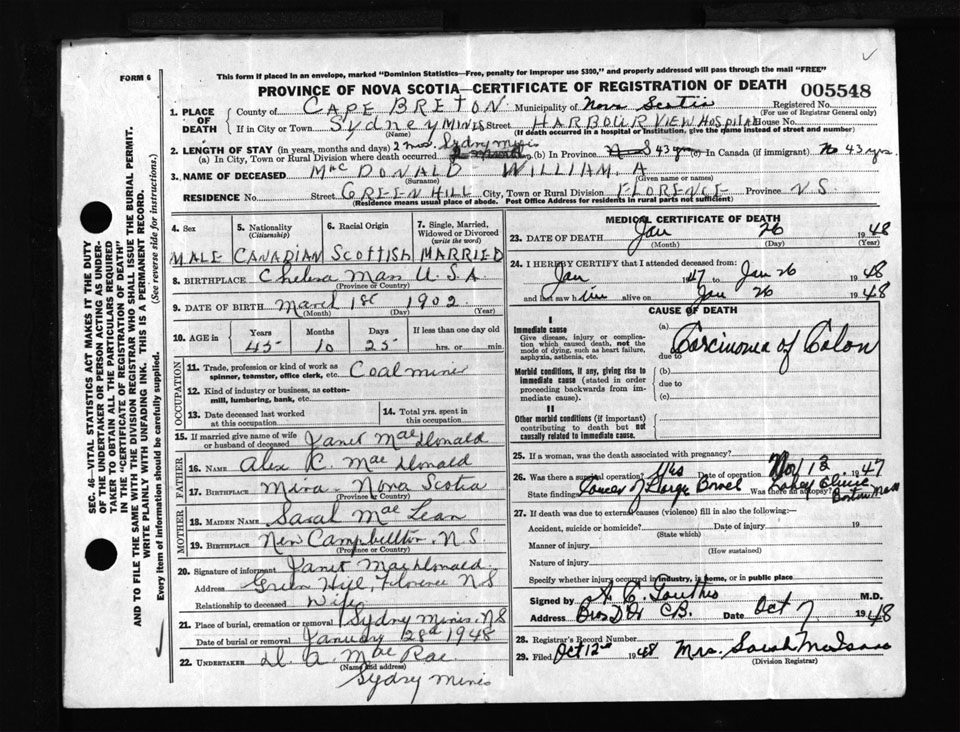 FORM 6
This form if placed in an envelope, marked "Dominion Statistics—Free, penalty for improper use $300," and properly addressed will pass through the mail "FREE"
PROVINCE OF NOVA SCOTIA—CERTIFICATE OF REGISTRATION OF DEATH 005548
SEC. 46—VITAL STATISTICS ACT MAKES IT THE DUTY
OF THE UNDERTAKER OR PERSON ACTING AS UNDER-
TAKER TO OBTAIN ALL THE PARTICULARS REQUIRED
IN THE "CERTIFICATE OF REGISTRATION OF DEATH"
AND TO FILE THE SAME WITH THE DIVISION REGISTRAR WHO SHALL ISSUE THE BURIAL PERMIT.
WRITE PLAINLY WITH UNFADING INK. THIS IS A PERMANENT RECORD.
Every item of information should be carefully supplied. (See reverse side for instructions.)
1. PLACE OF DEATH County of CAPE BRETON Municipality of Nova Scotia Registered No.
(For use of Registrar General only)
If in City or Town SYDNEY MINES Street HARBOUR VIEW HOSPITAL House No.
(Name) (If death occurred in a hospital or institution, give the name instead of street and number)
2. LENGTH OF STAY (in years, months and days) 2 mos. Sydney Mines
(a) In City, Town or Rural Division where death occurred (b) In Province N S 43 yrs (c) In Canada (if immigrant) 43 yrs.
3. NAME OF DECEASED MacDONALD WILLIAM. A
(Surname) (Given name or names)
RESIDENCE No. Street GREEN HILL City, Town or Rural Division FLORENCE Province N S
(Residence means usual place of abode. Post Office Address for residents in rural parts not sufficient)
4. Sex
MALE
5. Nationality
(Citizenship)
CANADIAN
6. Racial Origin
SCOTTISH
7. Single, Married, Widowed or Divorced
(write the word)
MARRIED
8. BIRTHPLACE Chelsea Mass U.S.A
(Province or Country)
9. DATE OF BIRTH March 1st 1902
(Month) (Day) (Year)
10. AGE in Years Months Days If less than one day old
45 10 25 hrs. or min.
OCCUPATION
11. Trade, profession or kind of work as
spinner, teamster, office clerk, etc. Coal miner
12. Kind of industry or business, as cotton-
mill, lumbering, bank, etc.
13. Date deceased last worked
at this occupation
14. Total yrs. spent in
this occupation
15. If married give name of wife
or husband of deceased Janet MacDonald
FATHER
16. Name Alex R. MacDonald
17. Birthplace Mira - Nova Scotia
(Province or Country)
MOTHER
18. MAIDEN NAME Sarah MacLean
19. BIRTHPLACE New Campbellton N.S
(Province or Country)
20. Signature of informant Janet MacDonald
Address Green Hill, Florence N S
Relationship to deceased Wife
21. Place of burial, cremation or removal Sydney Mines, N S
Date of burial or removal January 28th 1948
22. UNDERTAKER D. A. MacRae
(Name and address)
Sydney Mines
MEDICAL CERTIFICATE OF DEATH
23. DATE OF DEATH Jan 26 1948
(Month) (Day) (Year)
24. I HEREBY CERTIFY that I attended deceased from:
Jan 1947 Jan 26 1948
and last saw him alive on Jan 26 1948
CAUSE OF DEATH
I
Immediate cause
Give disease, injury or compli-
cation which caused death, not the
mode of dying, such as heart failure,
asphyxia, asthenia, etc.
(a) Carcinoma of Colon
due to
Morbid conditions, if any, giving rise to
immediate cause (stated in order
proceeding backwards from im-
mediate cause).
(b)
due to
(c)
II
Other morbid conditions (if important)
contributing to death but not
causally related to immediate cause.
25. If a woman, was the death associated with pregnancy?
26. Was there a surgical operation? Yes Date of operation Nov 12 1947
State findings Cancer of Large Bowel Was there an autopsy? Lahey Clinic
Boston Mass
27. If death was due to external causes (violence) fill in also the following:—
Accident, suicide or homicide? Date of injury 19
(State which)
Manner of injury
(How sustained)
Nature of injury
Specify whether injury occurred in industry, in home, or in public place
Signed by M.D.
Address C.B. Date Oct 7 1948
28. Registrar's Record Number
29. Filed Oct 12th 1948 Mrs. Sarah McIsaac
(Division Registrar)